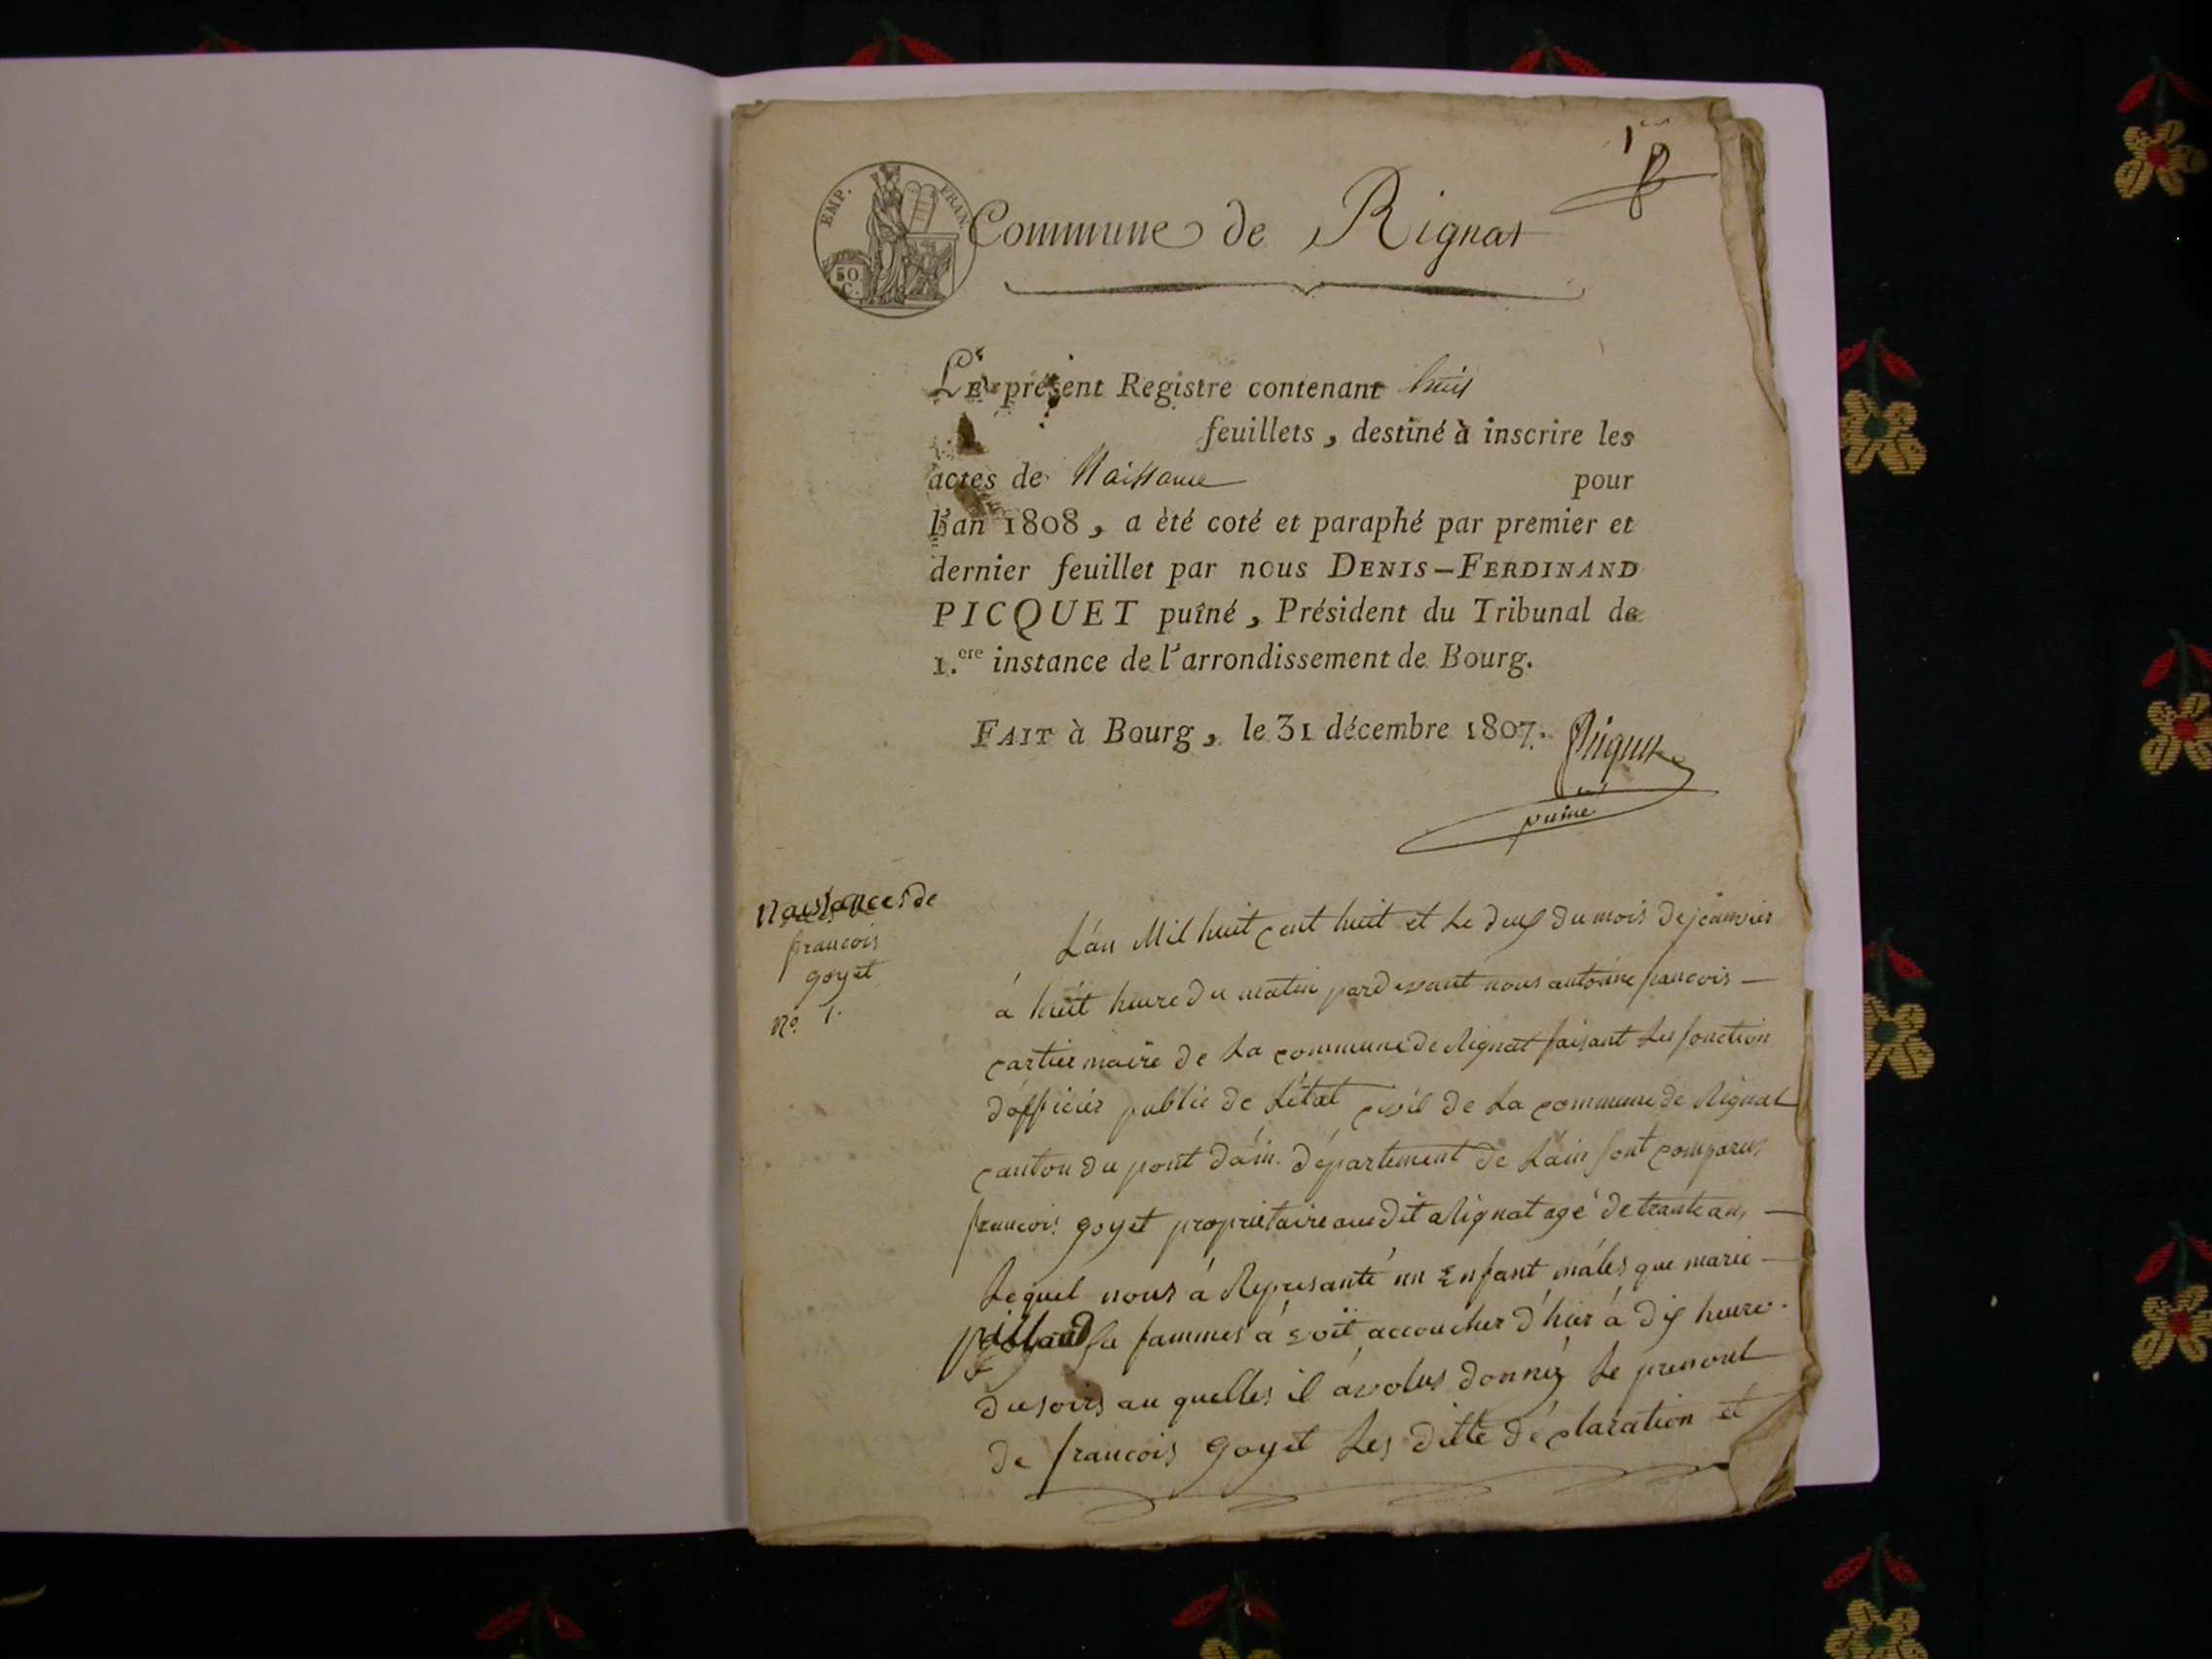 1er
EMP. FRAN.
50 C.
Commune de Rignat
LE présent Registre contenant huit
feuillets, destiné à inscrire les
actes de Naissance pour
l'an 1808, a èté coté et paraphé par premier et
dernier feuillet par nous DENIS-FERDINAND
PICQUET puîné, Président du Tribunal de
1.ere instance de l'arrondissement de Bourg.
FAIT à Bourg, le 31 décembre 1807.
Picquet
puiné
Naissances de
francois
goyet
No. 1.
L'an Mil huit cent huit et Le deux du mois de jeanvier
á huit heure du matin pardevant nous antoine francois
cartier maire de La commune de Rignat faisant Les fonction
d'officier public de L'état civil de La commune de Rignat
canton du pont d'ain département de L'ain sont comparus
francois goyet propriétaire audit Rignat agé de trante ans
Lequel nous á Represanté un Enfant máles que marie
pilland sa fammes á voit accoucher d'hier á dix heure
du soirs au quelles il ávolus donnéz Le prenont
de francois goyet Les ditte déclaration et